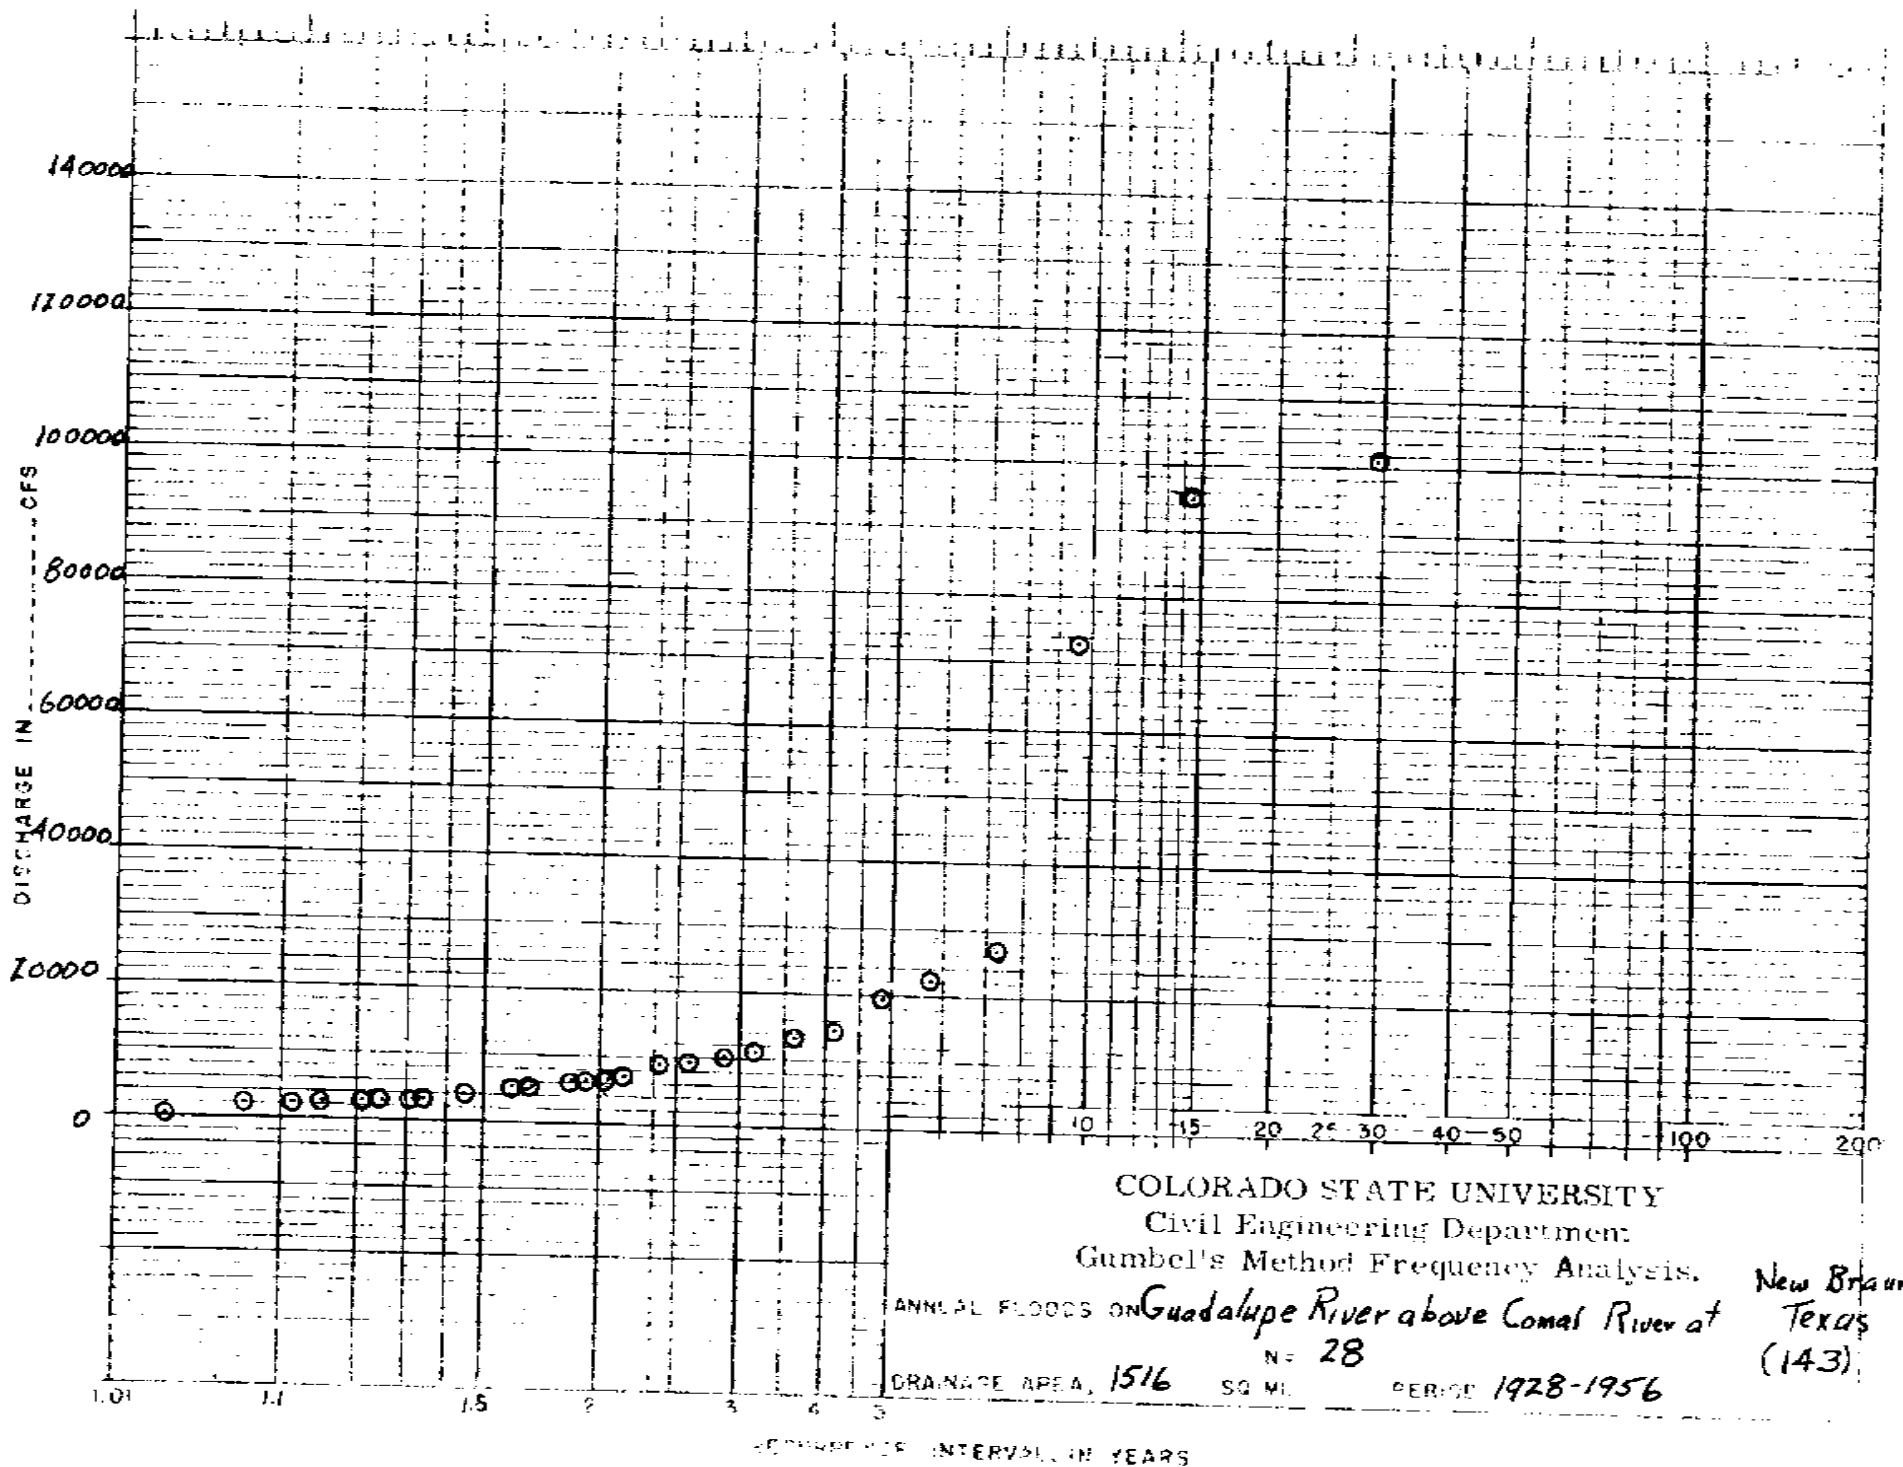 140000
120000
100000
80000
60000
40000
20000
0
DISCHARGE IN CFS
10 15 20 25 30 40 50 100 200
COLORADO STATE UNIVERSITY
Civil Engineering Department
Gumbel's Method Frequency Analysis.
ANNUAL FLOODS ON Guadalupe River above Comal River at New Braun
Texas
(143)
N= 28
DRAINAGE AREA, 1516 SQ MI. PERIOD 1928-1956
1.01 1.1 1.5 2 3 4 5
RECURRENCE INTERVAL, IN YEARS